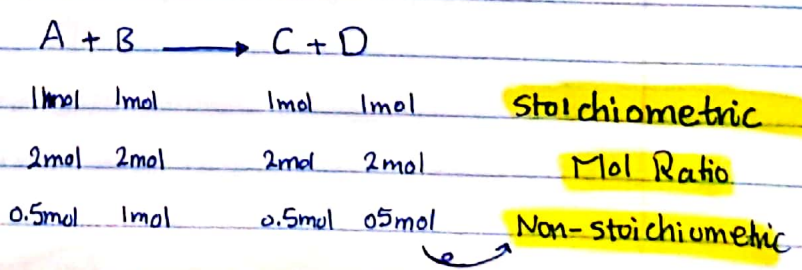 A + B ⟶ C + D
1mol 1mol 1mol 1mol Stoichiometric
2mol 2mol 2mol 2mol Mol Ratio
0.5mol 1mol 0.5mol 05mol Non-stoichiometric